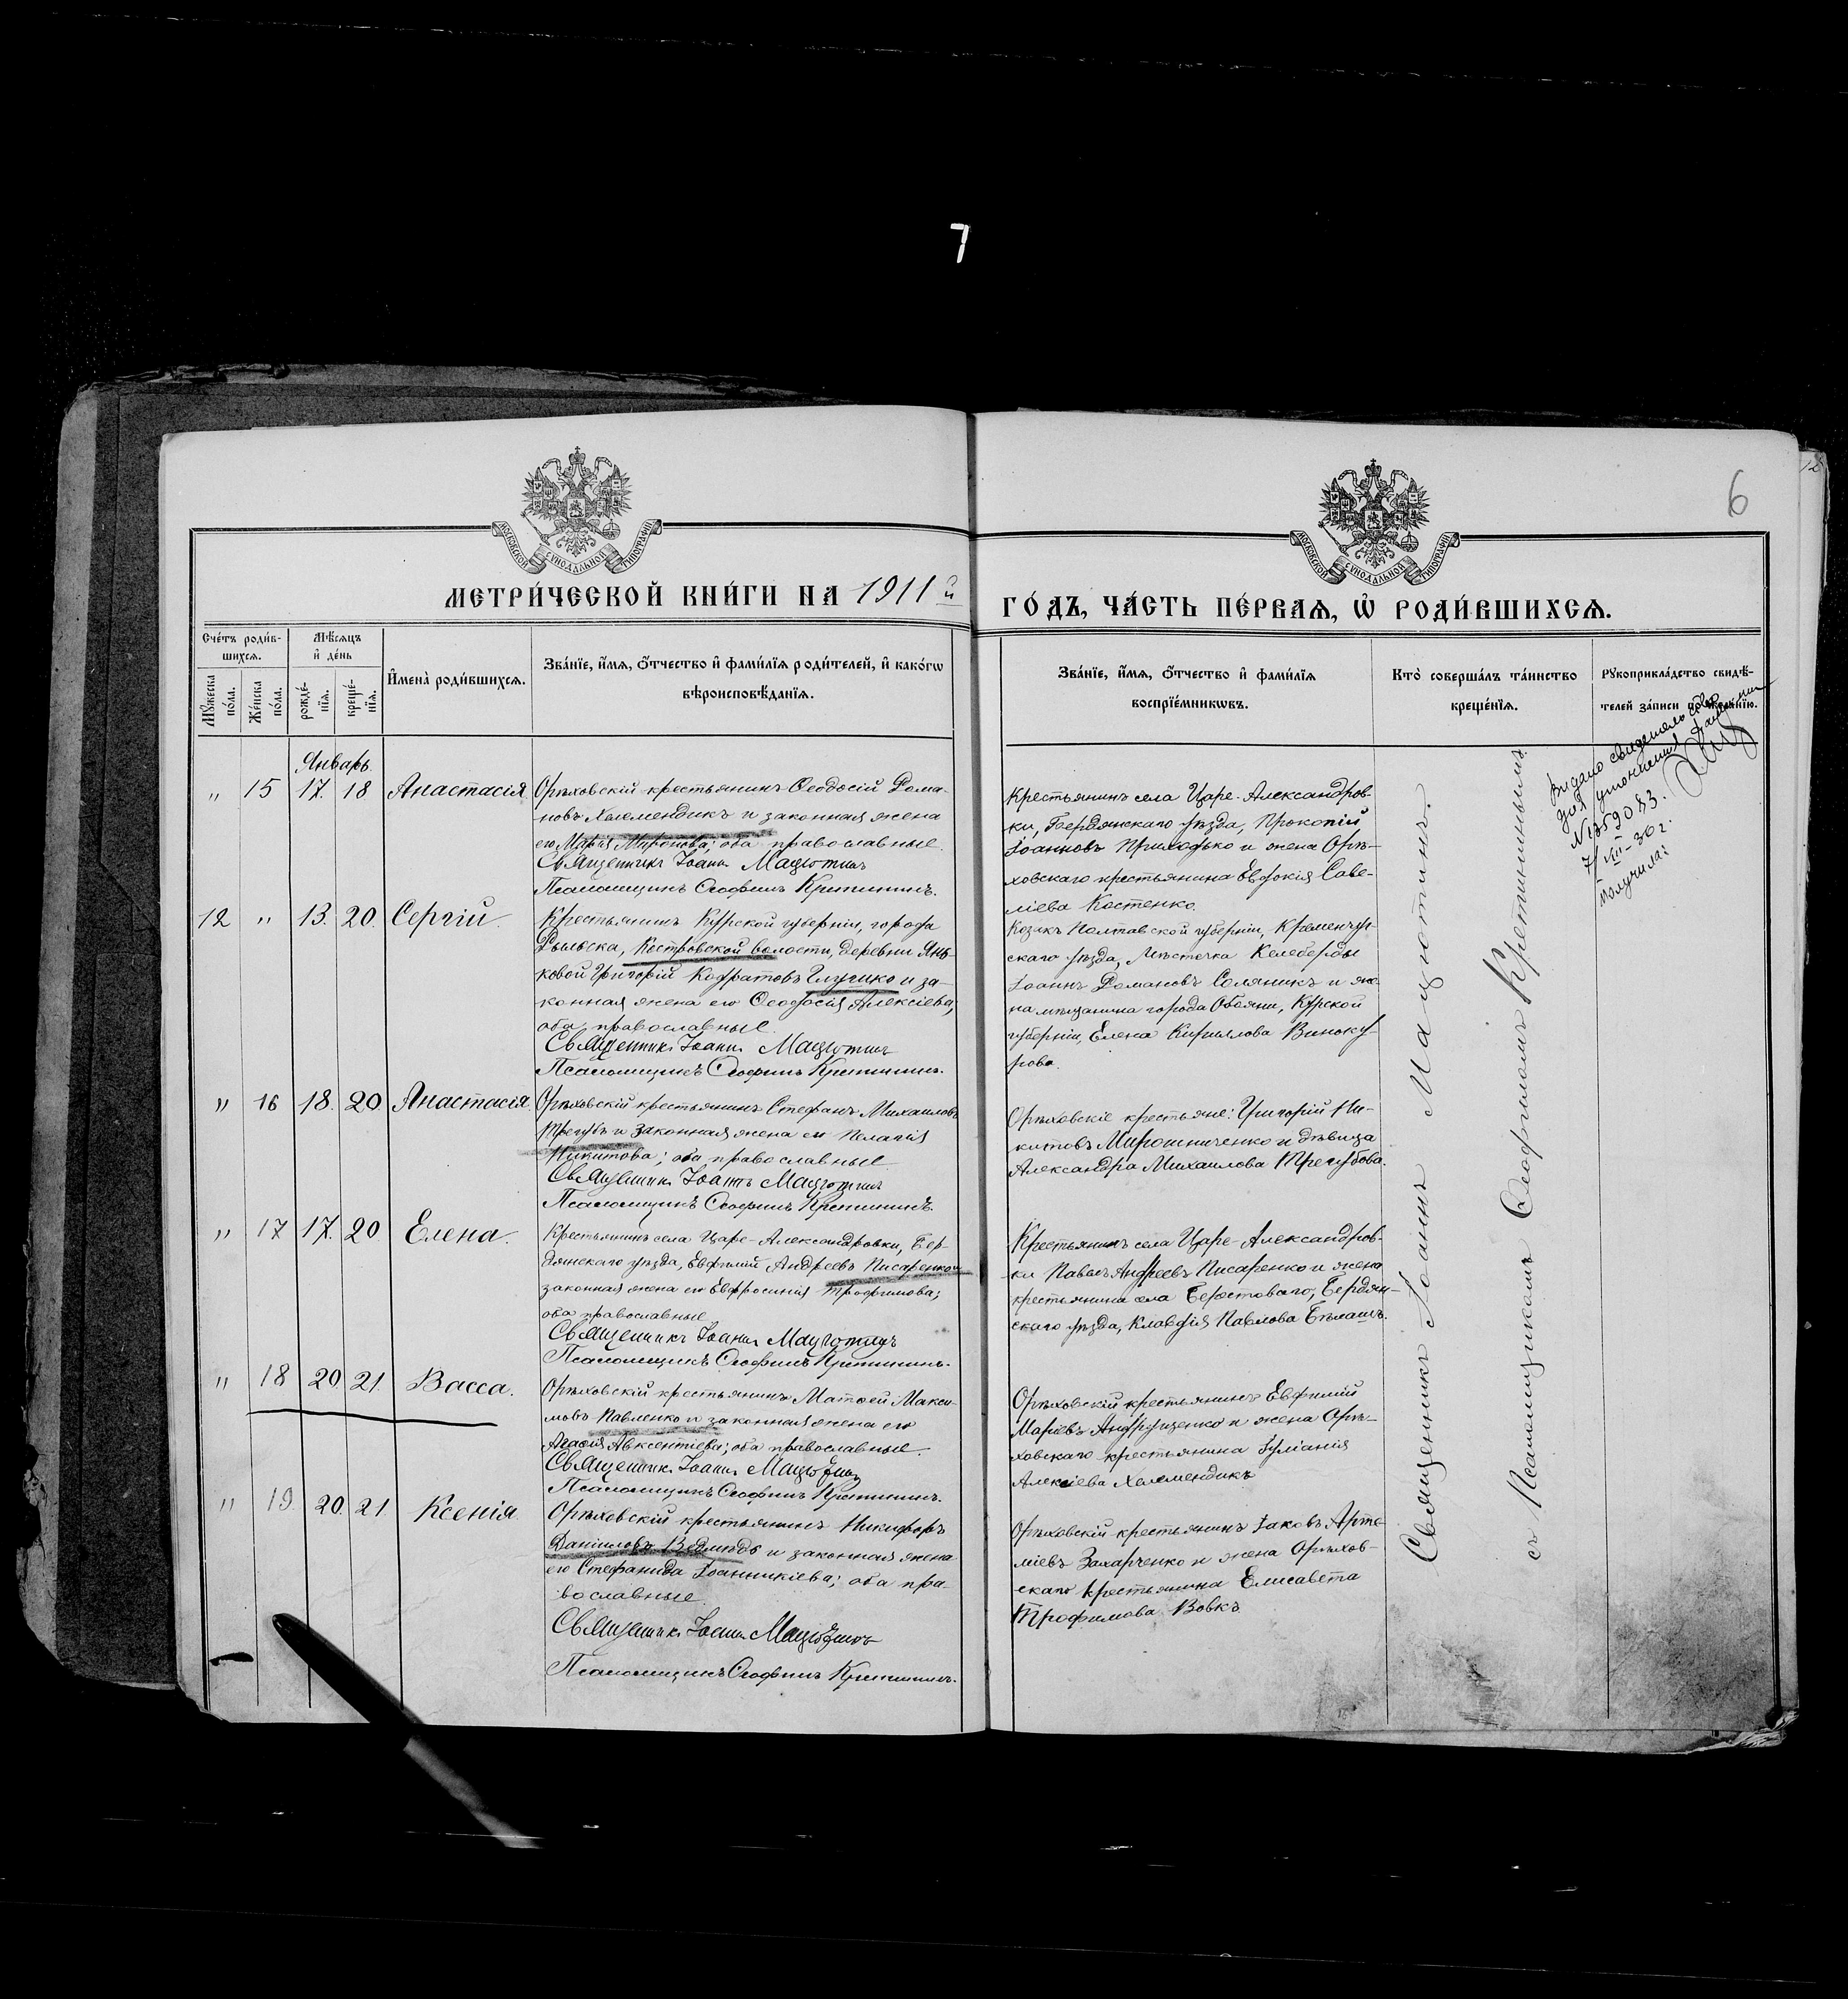 7
6
МОСКОВСКОЙ СѴНОДАЛЬНОЙ ТИПОГРАФІИ
МОСКОВСКОЙ СѴНОДАЛЬНОЙ ТИПОГРАФІИ
МЕТРИ́ЧЕСКОЙ КНИ́ГИ НА 1911й
ГО́ДЪ, ЧА́СТЬ ПЕ́РВАѦ, Ѡ҆ РОДИ́ВШИХСѦ.
Сче́тъ роди́в-
шихсѧ.
Мꙋ́жеска
по́ла.
Же́нска
по́ла.
Мѣ́сѧцъ
и҆ де́нь
рожде́-
нїѧ.
креще́-
нїѧ.
И҆мена̀ роди́вшихсѧ.
Зва́нїе, и҆́мѧ, ѻ҆́тчество и҆ фами́лїѧ роди́телей, и҆ како́гѡ
вѣроисповѣ́данїѧ.
Зва́нїе, и҆́мѧ, ѻ҆́тчество и҆ фами́лїѧ
воспрїе́мникѡвъ.
Кто̀ соверша́лъ та́инство
креще́нїѧ.
Рꙋкоприкла́дство свидѣ́-
телей за́писи по жела́нїю.
Январь.
" 15 17. 18 Анастасія
Орѣховскій крестьянинъ Ѳеодосій Рома-
новъ Халемендикъ и законная жена
его Марія Миронова; оба православные.
Священникъ Іоаннъ Мацютинъ
Псаломщикъ Ѳеофилъ Крепининъ.
Крестьянинъ села Царе-Александров-
ки, Бердянскаго уѣзда, Прокопій
Іоанновъ Приходько и жена Орѣ-
ховскаго крестьянина Евдокія Саве-
ліева Костенко.
12 " 13. 20. Сергій
Крестьянинъ Курской губерніи, города
Рыльска, Костровской волости, деревни Янь-
ковой Григорій Кодратовъ Глушко и за-
конная жена его Ѳеодосія Алексіева,
оба православные.
Священникъ Іоаннъ Мацютинъ
Псаломщикъ Ѳеофилъ Крепининъ.
Козакъ Полтавской губерніи, Кременчуг-
скаго уѣзда, мѣстечка Келеберды
Іоаннъ Романовъ Соляникъ и же-
на мѣщанина города Обояни, Курской
губерніи, Елена Кириллова Виноку-
рова.
" 16 18. 20 Анастасія.
Орѣховскій крестьянинъ Стефанъ Михаиловъ
Трегубъ и законная жена его Пелагія
Никитова; оба православные
Священникъ Іоаннъ Мацютинъ
Псаломщикъ Ѳеофилъ Крепининъ.
Орѣховскіе крестьяне: Григорій Ни-
китовъ Мирошниченко и дѣвица
Александра Михаилова Трегубова.
" 17 17. 20 Елена.
Крестьянинъ села Царе-Александровки, Бер-
дянскаго уѣзда, Евфимій Андреевъ Писаренко и
законная жена его Евфросинія Трофимова;
оба православные
Священникъ Іоаннъ Мацютинъ
Псаломщикъ Ѳеофилъ Крепининъ.
Крестьянинъ села Царе-Александров-
ки Павелъ Андреевъ Писаренко и жена
крестьянина села Берестоваго, Бердян-
скаго уѣзда, Клавдія Павлова Бѣлашъ.
" 18 20. 21. Васса.
Орѣховскій крестьянинъ Матѳей Макси-
мовъ Павленко и законная жена его
Агафія Авксентіева; оба православные.
Священникъ Іоаннъ Мацютинъ
Псаломщикъ Ѳеофилъ Крепининъ.
Орѣховскій крестьянинъ Евфимій
Андрущенко и жена Орѣ-
ховскаго крестьянина Іуліанія
Алексіева Халемендикъ
" 19. 20. 21. Ксенія.
Орѣховскій крестьянинъ Никифоръ
Даніиловъ и законная жена
его Стефанида Іоанникіева; оба пра-
вославные.
Священникъ Іоаннъ Мацютинъ
Псаломщикъ Ѳеофилъ Крепининъ.
Орѣховскій крестьянинъ Іаковъ Арте-
міевъ Захарченко и жена Орѣхов-
скаго крестьянина Елисавета
Трофимова Вовкъ.
Священникъ Іоаннъ Мацютинъ.
съ Псаломщикомъ Ѳеофиломъ Крепининымъ.
Видано свидетельство
для
№ 1359083.
7/III-36 г.
получила: